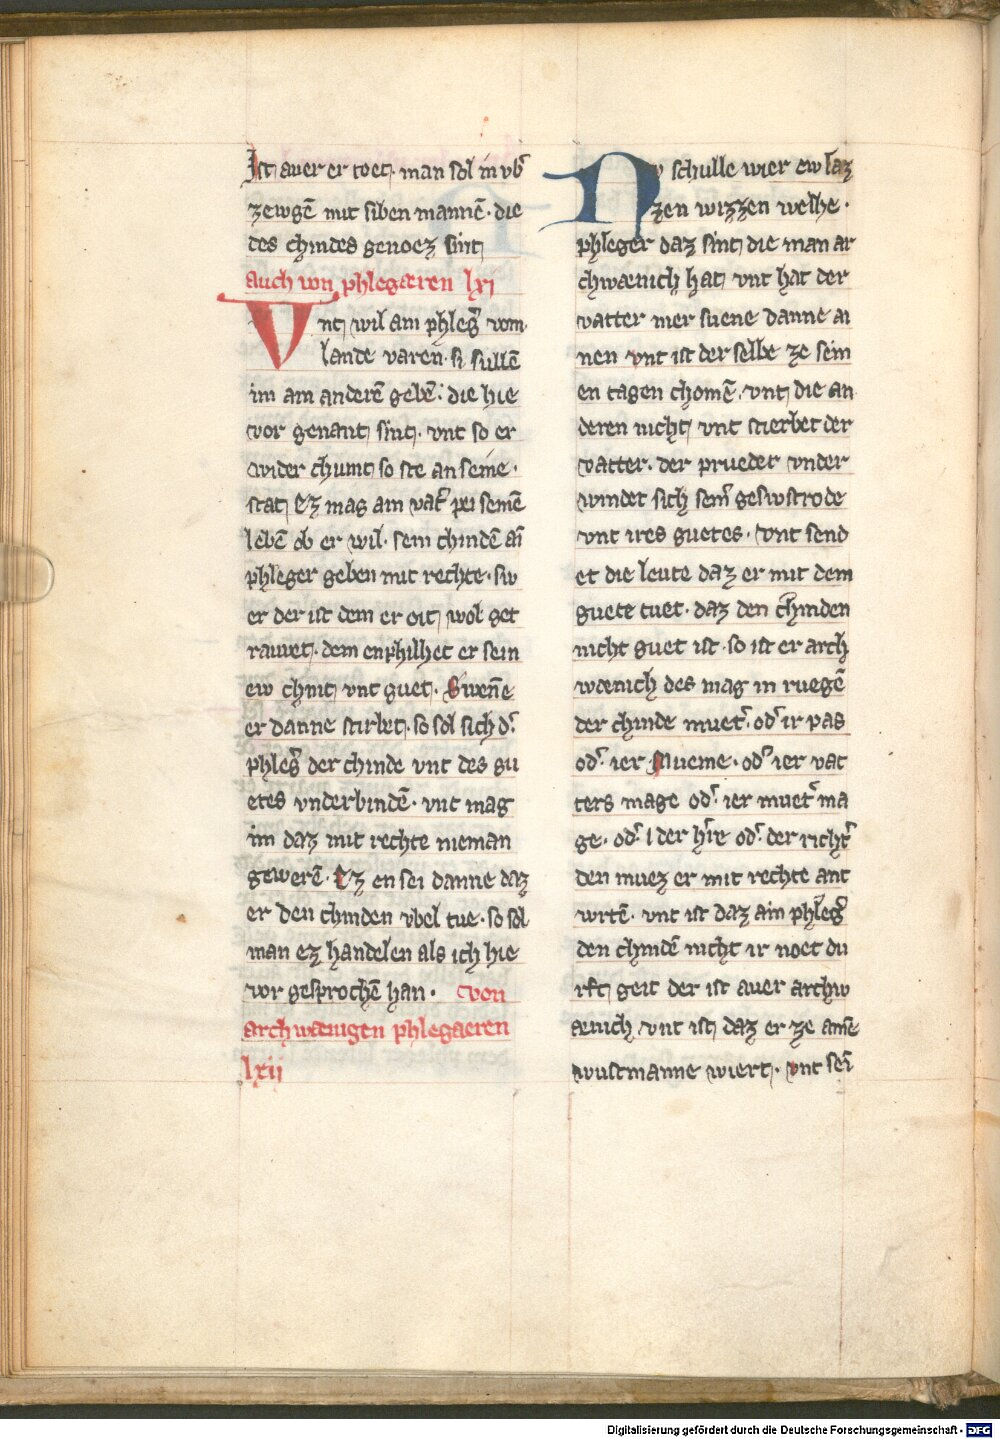 Ist auer er toet. man sol in vb̄
zewgē mit siben mannē. die
des chindes genoez sint
auch von phlegæren lxi
Vnt wil ain phleḡ vom
lande varen. si sullē
im ain anderē gebē. die hie
vor genant sint. vnt so er
wider chumt so ste an seine.
stat Ez mag ain vat̄ pei seinē
lebē ob er wil. sein chindē aī
phleger geben mit rechte. sw
er der ist dem er oit wol get
rawet. dem enphilhet er sein
ew chint vnt guet. Swen̄e
er danne stirbet. so sol sich d̄.
phleḡ der chinde vnt des gu
etes vnderbindē. vnt mag
im daz mit rechte nieman
gewerē. Ez en sei danne daz
er den chinden vbel tue. so sol
man ez handelen als ich hie
vor gesprochē han. von
archwænigen phlegaeren
lxii
Nv schulle wier ew laz
zen wizzen welhe.
phleger daz sint die man ar
chwænich hat vnt hat der
vatter mer suene danne ai
nen vnt ist der selbe ze sein
en tagen chomē. vnt die an
deren nicht vnt stierbet der
vatter. der prueder vnder
windet sich sein̄ geswstrode
vnt ires guetes. vnt send
et die leute daz er mit dem
guete tuet. daz den chinden
nicht guet ist. so ist er arch
wænich des mag in ruegē
der chinde muet̄. od̄ ir pas
od̄. ier Mueme. od̄ ier vat
ters mage od̄. ier muet̄ ma
ge. od̄. l der h̄re od̄. der richt̄
den muez er mit rechte ant
wrtē. vnt ist daz ain phleḡ
den chindē nicht ir noet du
rft geit der ist auer archw
ænich vnt ist daz er ze ainē
wustmanne wiert. vnt seī